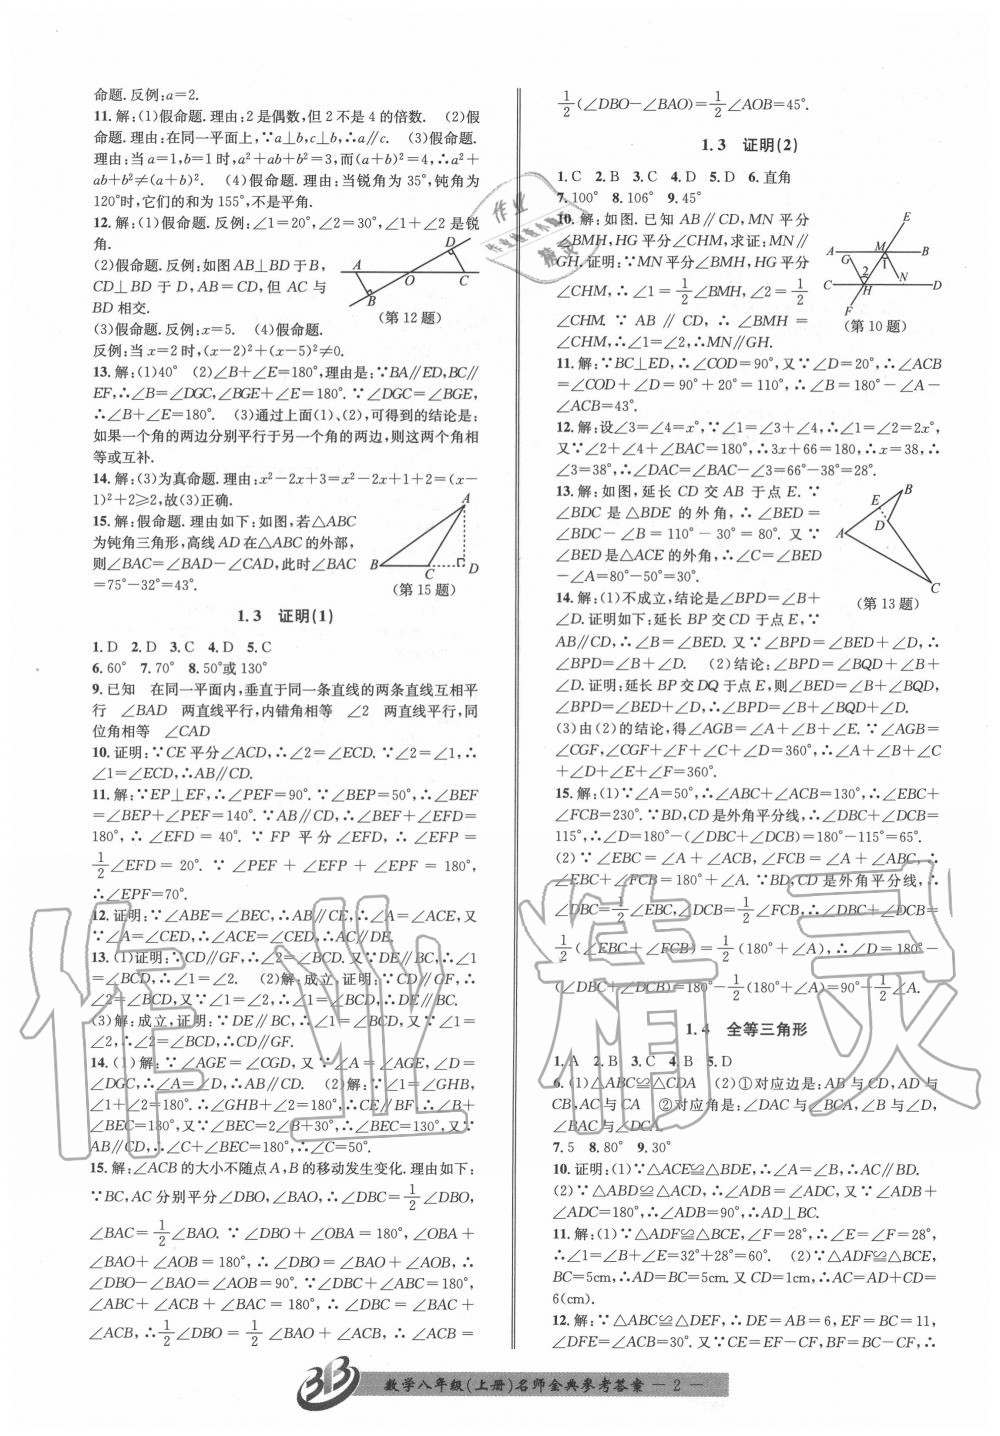 命题.反例:a=2.
11.解:(1)假命题.理由:2是偶数,但2不是4的倍数. (2)假
命题.理由:在同一平面上,∵a⊥b,c⊥b,∴a∥c. (3)假命题.
理由:当a=1,b=1时,a²+ab+b²=3,而(a+b)²=4,∴a²+
ab+b²≠(a+b)². (4)假命题.理由:当锐角为35°,钝角为
120°时,它们的和为155°,不是平角.
12.解:(1)假命题.反例:∠1=20°,∠2=30°,∠1+∠2是锐
角.
(2)假命题.反例:如图AB⊥BD于B,
CD⊥BD于D,AB=CD,但AC与
BD相交.
(第12题)
(3)假命题.反例:x=5. (4)假命题.
反例:当x=2时,(x-2)²+(x-5)²≠0.
13.解:(1)40° (2)∠B+∠E=180°,理由是:∵BA∥ED,BC∥
EF,∴∠B=∠DGC,∠BGE+∠E=180°.∵∠DGC=∠BGE,
∴∠B+∠E=180°. (3)通过上面(1)、(2),可得到的结论是:
如果一个角的两边分别平行于另一个角的两边,则这两个角相
等或互补.
14.解:(3)为真命题.理由:x²-2x+3=x²-2x+1+2=(x-
1)²+2≥2,故(3)正确.
15.解:假命题.理由如下:如图,若△ABC
为钝角三角形,高线AD在△ABC的外部,
则∠BAC=∠BAD-∠CAD,此时∠BAC
=75°-32°=43°.
(第15题)
1.3 证明(1)
1.D 2.D 3.C 4.D 5.C
6.60° 7.70° 8.50°或130°
9.已知 在同一平面内,垂直于同一条直线的两条直线互相平
行 ∠BAD 两直线平行,内错角相等 ∠2 两直线平行,同
位角相等 ∠CAD
10.证明:∵CE平分∠ACD,∴∠2=∠ECD.∵∠2=∠1,∴
∠1=∠ECD,∴AB∥CD.
11.解:∵EP⊥EF,∴∠PEF=90°.∵∠BEP=50°,∴∠BEF
=∠BEP+∠PEF=140°.∵AB∥CD,∴∠BEF+∠EFD=
180°,∴∠EFD=40°.∵FP平分∠EFD,∴∠EFP=
1/2∠EFD=20°.∵∠PEF+∠EFP+∠EPF=180°,
∴∠EPF=70°.
12.证明:∵∠ABE=∠BEC,∴AB∥CE,∴∠A=∠ACE,又
∵∠A=∠CED,∴∠ACE=∠CED,∴AC∥DE.
13.(1)证明:∵CD∥GF,∴∠2=∠BCD.又∵DE∥BC,∴∠1
=∠BCD,∴∠1=∠2. (2)解:成立,证明:∵CD∥GF,∴∠2
=∠BCD,又∵∠1=∠2,∴∠1=∠BCD,∴DE∥BC.
(3)解:成立,证明:∵DE∥BC,∴∠1=∠BCD,又∵∠1=
∠2,∴∠2=∠BCD,∴CD∥GF.
14.(1)解:∵∠AGE=∠CGD,又∵∠A=∠AGE,∠D=
∠DGC,∴∠A=∠D,∴AB∥CD. (2)解:∵∠1=∠GHB,
∠1+∠2=180°,∴∠GHB+∠2=180°,∴CE∥BF.∴∠B+
∠BEC=180°,又∵∠BEC=2∠B+30°,∴∠BEC=130°,又∵
AB∥CD,∴∠C+∠BEC=180°,∴∠C=50°.
15.解:∠ACB的大小不随点A,B的移动发生变化.理由如下:
∵BC,AC分别平分∠DBO,∠BAO,∴∠DBC=1/2∠DBO,
∠BAC=1/2∠BAO.∵∠DBO+∠OBA=180°,∠OBA+
∠BAO+∠AOB=180°,∴∠DBO=∠BAO+∠AOB,∴
∠DBO-∠BAO=∠AOB=90°.∵∠DBC+∠ABC=180°,
∠ABC+∠ACB+∠BAC=180°,∴∠DBC=∠BAC+
∠ACB,∴1/2∠DBO=1/2∠BAO+∠ACB,∴∠ACB=
1/2(∠DBO-∠BAO)=1/2∠AOB=45°.
1.3 证明(2)
1.C 2.B 3.C 4.D 5.D 6.直角
7.100° 8.106° 9.45°
10.解:如图.已知AB∥CD,MN平分
∠BMH,HG平分∠CHM,求证:MN∥
GH.证明:∵MN平分∠BMH,HG平分
∠CHM,∴∠1=1/2∠BMH,∠2=1/2
∠CHM.∵AB∥CD,∴∠BMH=
∠CHM,∴∠1=∠2,∴MN∥GH.
(第10题)
11.解:∵BC⊥ED,∴∠COD=90°,又∵∠D=20°,∴∠ACB
=∠COD+∠D=90°+20°=110°,∴∠B=180°-∠A-
∠ACB=43°.
12.解:设∠3=∠4=x°,∵∠1=∠3+∠4,∴∠1=∠2=2x°,
又∵∠2+∠4+∠BAC=180°,∴3x+66=180,∴x=38,∴
∠3=38°,∴∠DAC=∠BAC-∠3=66°-38°=28°.
13.解:如图,延长CD交AB于点E.∵
∠BDC是△BDE的外角,∴∠BED=
∠BDC-∠B=110°-30°=80°.又∵
∠BED是△ACE的外角,∴∠C=∠BED
-∠A=80°-50°=30°.
(第13题)
14.解:(1)不成立,结论是∠BPD=∠B+
∠D.证明如下:延长BP交CD于点E,∵
AB∥CD,∴∠B=∠BED.又∵∠BPD=∠BED+∠D,∴
∠BPD=∠B+∠D. (2)结论:∠BPD=∠BQD+∠B+
∠D.证明:延长BP交DQ于点E,则∠BED=∠B+∠BQD,
∠BPD=∠BED+∠D,∴∠BPD=∠B+∠BQD+∠D.
(3)由(2)的结论,得∠AGB=∠A+∠B+∠E.∵∠AGB=
∠CGF,∠CGF+∠F+∠C+∠D=360°,∴∠A+∠B+∠C
+∠D+∠E+∠F=360°.
15.解:(1)∵∠A=50°,∴∠ABC+∠ACB=130°,∴∠EBC+
∠FCB=230°.∵BD,CD是外角平分线,∴∠DBC+∠DCB=
115°,∴∠D=180°-(∠DBC+∠DCB)=180°-115°=65°.
(2)∵∠EBC=∠A+∠ACB,∠FCB=∠A+∠ABC,∴
∠EBC+∠FCB=180°+∠A.∵BD,CD是外角平分线,∴
∠DBC=1/2∠EBC,∠DCB=1/2∠FCB,∴∠DBC+∠DCB=
1/2(∠EBC+∠FCB)=1/2(180°+∠A),∴∠D=180°-
(∠DBC+∠DCB)=180°-1/2(180°+∠A)=90°-1/2∠A.
1.4 全等三角形
1.A 2.B 3.C 4.B 5.D
6.(1)△ABC≌△CDA (2)①对应边是:AB与CD,AD与
CB,AC与CA ②对应角是:∠DAC与∠BCA,∠B与∠D,
∠BAC与∠DCA.
7.5 8.80° 9.30°
10.证明:(1)∵△ACE≌△BDE,∴∠A=∠B,∴AC∥BD.
(2)∵△ABD≌△ACD,∴∠ADB=∠ADC,又∵∠ADB+
∠ADC=180°,∴∠ADB=90°,∴AD⊥BC.
11.解:(1)∵△ADF≌△BCE,∠F=28°,∴∠E=∠F=28°,
∴∠1=∠B+∠E=32°+28°=60°. (2)∵△ADF≌△BCE,
BC=5cm,∴AD=BC=5cm.又CD=1cm,∴AC=AD+CD=
6(cm).
12.解:∵△ABC≌△DEF,∴DE=AB=6,EF=BC=11,
∠DFE=∠ACB=30°.又∵CE=EF-CF,BF=BC-CF,∴
数学八年级(上册)名师金典参考答案 — 2 —
作业精灵